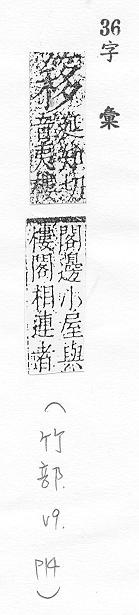 36
字彙
簃
延知切
音夷樓
閣邊小屋與
樓閣相連者
(竹部. V9. P14)